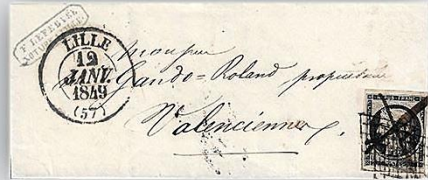 F. LEFEBVRE
LILLE
12
JANV.
1849
(57)
Monsieur
Gando=Roland propriétaire
Valenciennes